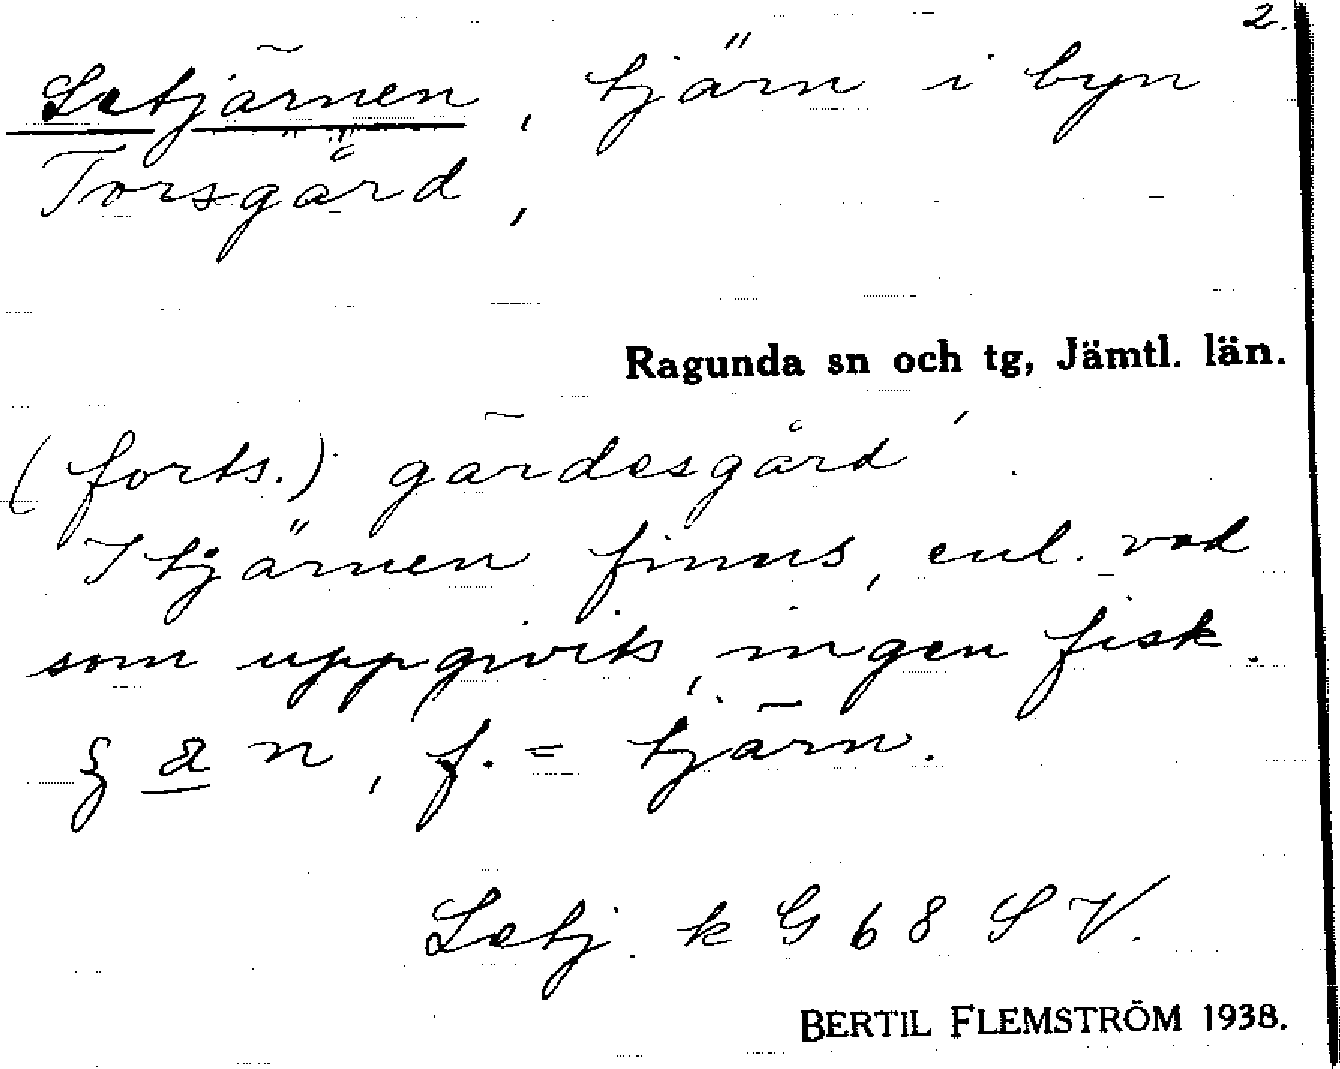 2.
Letjärnen, tjärn i byn
Torsgård,
Ragunda sn och tg, Jämtl. län.
(forts.) gärdesgård'.
I tjärnen finns, enl. vad
som uppgivits, ingen fisk.
n, f. = tjärn.
Letj. k G 68 SV.
BERTIL FLEMSTRÖM 1938.